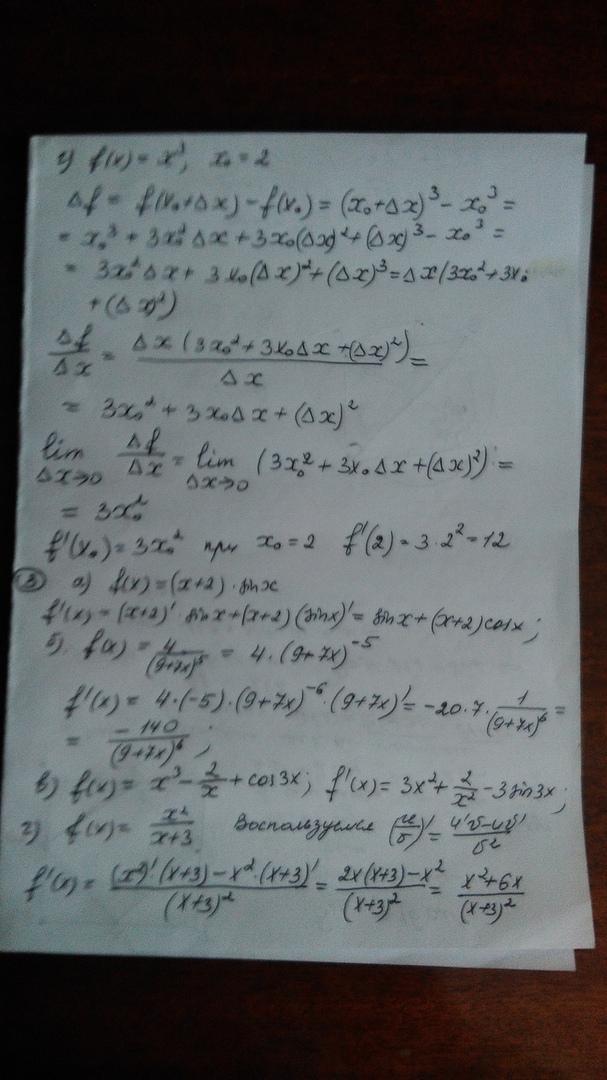 г) f(x) = x³, x₀ = 2
Δf = f(x₀+Δx) - f(x₀) = (x₀+Δx)³ - x₀³ =
= x₀³ + 3x₀²Δx + 3x₀(Δx)² + (Δx)³ - x₀³ =
= 3x₀²Δx + 3x₀(Δx)² + (Δx)³ = Δx(3x₀² + 3x₀
+ (Δx)²)
Δf/Δx = Δx(3x₀² + 3x₀Δx + (Δx)²)/Δx =
= 3x₀² + 3x₀Δx + (Δx)²
lim Δx→0 Δf/Δx = lim Δx→0 (3x₀² + 3x₀Δx + (Δx)²) =
= 3x₀²
f'(x₀) = 3x₀² при x₀ = 2 f'(2) = 3·2² = 12
③ а) f(x) = (x+2)·sinx
f'(x) = (x+2)'·sinx + (x+2)(sinx)' = sinx + (x+2)cosx;
б) f(x) = 4/(9+7x)⁵ = 4·(9+7x)⁻⁵
f'(x) = 4·(-5)·(9+7x)⁻⁶·(9+7x)' = -20·7·1/(9+7x)⁶ =
= -140/(9+7x)⁶;
в) f(x) = x³ - 2/x + cos3x; f'(x) = 3x² + 2/x² - 3sin3x;
г) f(x) = x²/(x+3) Воспользуемся (u/v)' = (u'v-uv')/v²
f'(x) = ((x²)'·(x+3) - x²·(x+3)')/(x+3)² = (2x(x+3) - x²)/(x+3)² = (x²+6x)/(x+3)²